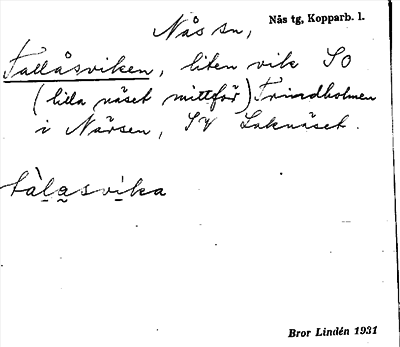 Nås sn, Nås tg, Kopparb. l.
Tallåsviken, liten vik SO
(lilla näset mittför) Trindholmen
i Närsen, SV Laknäset.
tàlasvika
Bror Lindén 1931